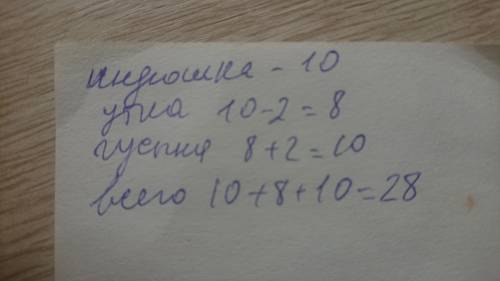 индюшка - 10
утка 10-2=8
гусыня 8+2=10
всего 10+8+10=28